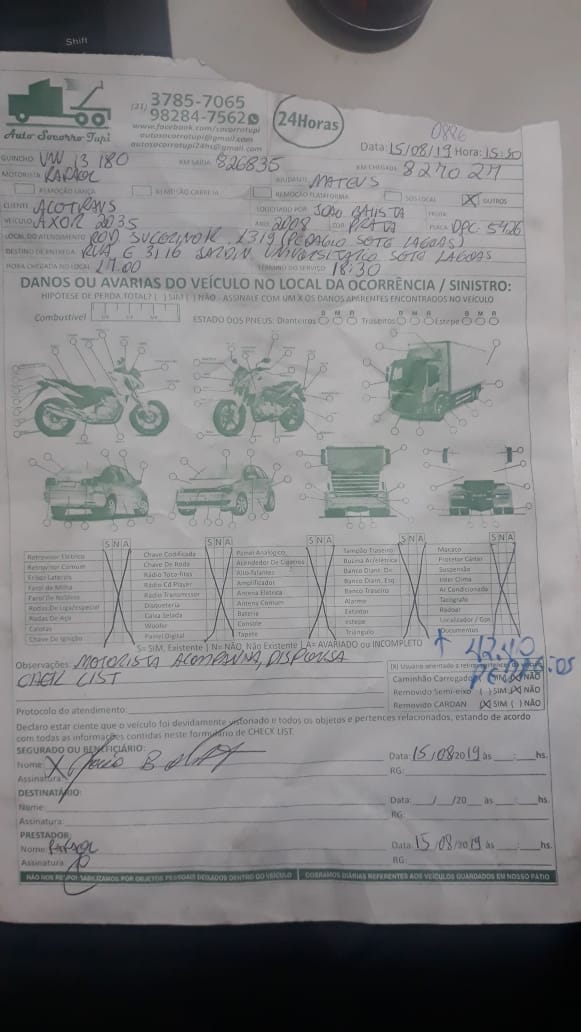 Shift
Auto Socorro Tupi
(21) 3785-7065
98284-7562
www.facebook.com/socorrotupi
autosocorrotupi@gmail.com
autosocorrotupi24hs@gmail.com
24Horas
0826
Data: 15/08/19 Hora: 15:30
GUINCHO VW 13 180 KM SAÍDA 826835 KM CHEGADA 827027
MOTORISTA RAFAEL AJUDANTE MATEUS
REMOÇÃO LANÇA REMOÇÃO CARRETA REMOÇÃO PLATAFORMA SOS LOCAL X OUTROS
CLIENTE ACOTRANS SOLICITADO POR JOÃO BATISTA FROTA
VEÍCULO AXOR 2035 ANO 2008 COR PRATA PLACA DPC 5426
LOCAL DO ATENDIMENTO ROD (PEDAGIO SETE LAGOAS)
DESTINO DE ENTREGA RUA UNIVERSITARIO SETE LAGOAS
HORA CHEGADA NO LOCAL 17.00 TÉRMINO DO SERVIÇO 18:30
DANOS OU AVARIAS DO VEÍCULO NO LOCAL DA OCORRÊNCIA / SINISTRO:
HIPÓTESE DE PERDA TOTAL? ( ) SIM ( ) NÃO - ASSINALE COM UM X OS DANOS APARENTES ENCONTRADOS NO VEÍCULO
Combustível ESTADO DOS PNEUS: Dianteiros B M R Traseiros B M R Estepe B M R
S N A S N A S N A S N A S N A
Retrovisor Elétrico Chave Codificada Painel Analógico Tampão Traseiro Macaco
Retrovisor Comum Chave De Roda Acendedor De Cigarros Buzina Ar/elétrica Protetor Cárter
Frisos Laterais Rádio Toca-fitas Alto-falantes Banco Diant. Dir. Suspensão
Farol de Milha Rádio Cd Player Amplificados Banco Diant. Esq Inter Clima
Farol De Neblina Rádio Transmissor Antena Elétrica Banco Traseiro Ar Condicionado
Rodas De Liga/especial Disqueteria Antena Comum Alarme Tacógrafo
Rodas De Aço Caixa Selada Bateria Extintor Radoar
Calotas Woofer Console estepe Localizador / Gps
Chave De Ignição Painel Digital Tapete Triângulo Documentos
S= SIM, Existente | N= NÃO, Não Existente | A= AVARIADO ou INCOMPLETO
42.40
PEDAGIOS
Observações: MOTORISTA ACOMPANHA, DISPENSA
CHEK LIST
Caminhão Carregado ( ) SIM (X) NÃO
Removido Semi-eixo ( ) SIM (X) NÃO
Removido CARDAN (X) SIM ( ) NÃO
Protocolo do atendimento:
Declaro estar ciente que o veículo foi devidamente vistoriado e todos os objetos e pertences relacionados, estando de acordo
com todas as informações contidas neste formulário de CHECK LIST.
SEGURADO OU BENEFICIÁRIO: Data: 15/08/2019 às ___:___hs.
Nome: X João B
Assinatura: RG:
DESTINATÁRIO: Data: __/__/20__ às ___:___hs.
Nome:
Assinatura: RG:
PRESTADOR: Data: 15/08/2019 às ___:___hs.
Nome: Rafael
Assinatura: RG:
NÃO NOS RESPONSABILIZAMOS POR OBJETOS PESSOAIS DEIXADOS DENTRO DO VEÍCULO | COBRAMOS DIÁRIAS REFERENTES AOS VEÍCULOS GUARDADOS EM NOSSO PÁTIO